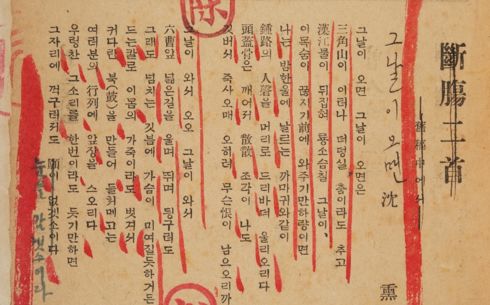 斷膓二首
그날이 오면 沈 熏
그날이 오면 그날이 오면은
三角山이 이러나 더덩실 춤이라도 추고
漢江물이 뒤집혀 룡소슴칠 그날이,
이목숨이 끊지기前에 와주기만하량이면
나는 밤한울에 날르는 까마귀와같이
鍾路의 人磬을 머리로 드리바더 울리오리다
頭蓋骨은 깨어저 散散 조각이 나도
깃버서 죽사오매 오히려 무슨恨이 남으오리까
그날이 와서 오오 그날이 와서
六曹앞 넓은길을 울며 뛰며 딍구러도
그래도 넘치는 깃븜에 가슴이 미여질듯하거든
드는칼로 이몸의 가죽이라도 벗겨서
커다란 북(鼓)을 만들어 들처메고는
여러분의 行列에 앞장을 스오리다
우렁찬 그소리를 한번이라도 듯기만하면
그자리에 꺽구러저도 願이 없겟소이다
눈을 감겟소이다